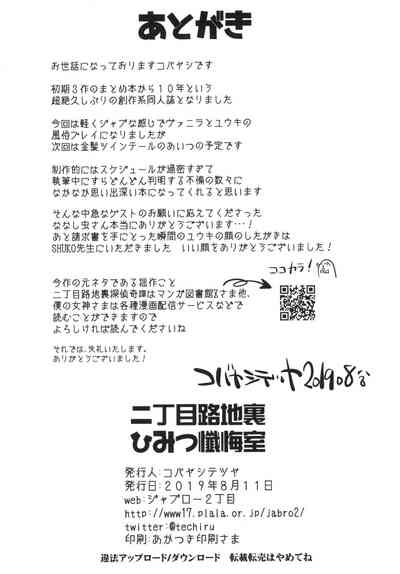 あとがき
お世話になっておりますコバヤシです
初期3作のまとめ本から10年という
超絶久しぶりの創作系同人誌となりました
今回は軽くジャブな感じでヴァニラとユウキの
風俗プレイになりましたが
次回は金髪ツインテールのあいつの予定です
制作的にはスケジュールが過密すぎて
執筆中にすらどんどん判明する不備の数々に
なかなか思い出深い本になってくれると思います
そんな中急なゲストのお願いに応えてくださった
ななし虫さん本当にありがとうございます…!
あと請求書を手にとった瞬間のユウキの顔のしたがきは
SHUKO先生にいただきました いい顔をありがとうございました!
ココカラ!
今作の元ネタである拙作こと
二丁目路地裏探偵奇譚はマンガ図書館Zさま他、
僕の女神さまは各種漫画配信サービスなどで
読むことができますので
よろしければ読んでくださいね
それでは、失礼いたします。
ありがとうございました!
コバヤシテツヤ 2019.08
二丁目路地裏
ひみつ懺悔室
発行人:コバヤシテツヤ
発行日:2019年8月11日
web:ジャブロー2丁目
http://www17.plala.or.jp/jabro2/
twitter:@techiru
印刷:あかつき印刷さま
違法アップロード/ダウンロード 転載転売はやめてね